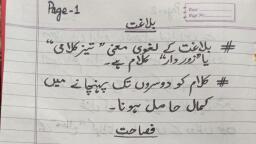 Page-1
بلاغت
# بلاغت کے لغوی معنی "تیز کلامی"
یا "زور دار" کلام ہے۔
# کلام کو دوسروں تک پہنچانے میں
کمال حاصل ہونا۔
فصاحت